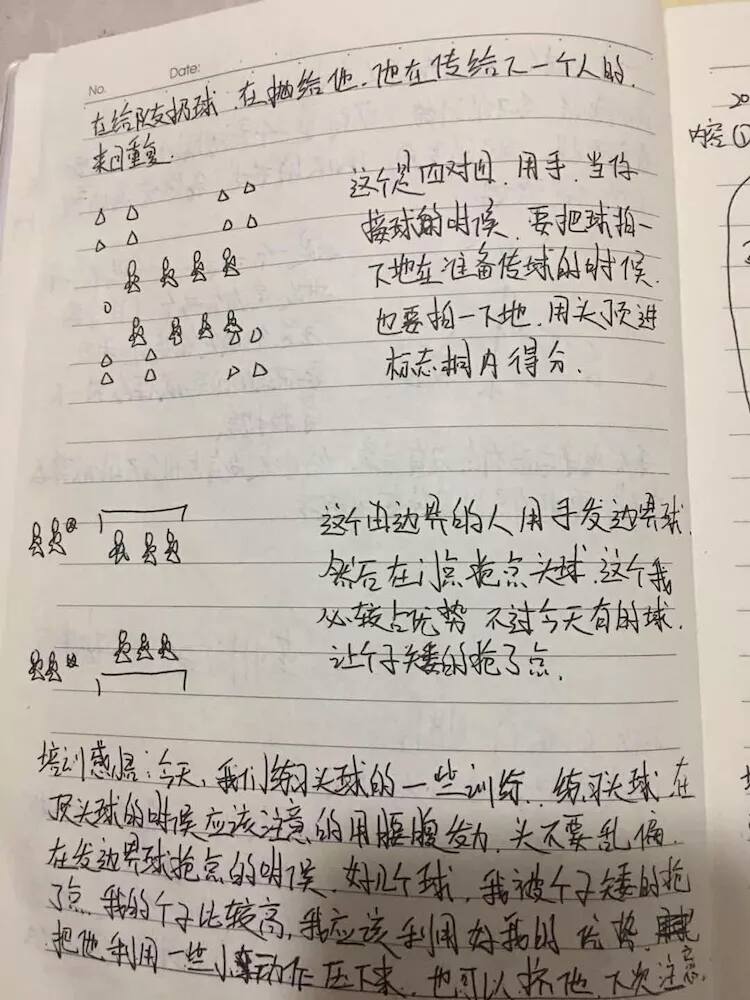 No. Date:
在给队友扔球,在抛给他,他在传给下一个人的,
来回重复.
这个是四对四,用手,当你
接球的时候,要把球拍一
下地在准备传球的时候,
也要拍一下地,用头顶进
标志桶内得分.
这个由边界的人用手发边界球,
然后在门点抢点头球,这个我
比较占优势 不过今天有的球,
让个子矮的抢了点.
培训感悟:今天,我们练习头球的一些训练,练习头球在
顶头球的时候应该注意的用腰腹发力,头不要乱偏,
在发边界球抢点的时候,好几个球,我被个子矮的抢
了点,我的个子比较高,我应该利用好我的优势,
把他利用一些小动作压下来,也可以挤他,下次注意.
20
内容①